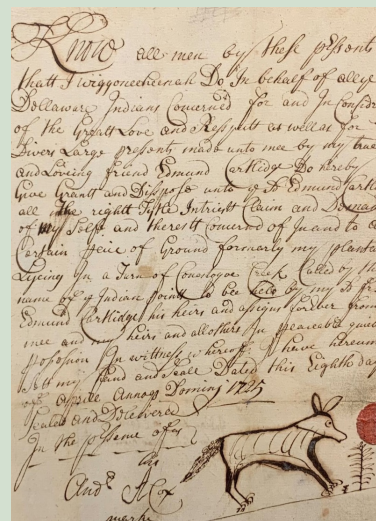 Know all men by these pssents
thatt I wiggoneeheenah Do In behalf of all ye
Dellaware Indians Concerned for and In Consider
of the Great Love and Respect as well as for
Divers Large presents made unto mee by my true
and Loving friend Edmund Cartlidge Do hereby
Give Grant and Dispose unto ye sd Edmund Cartl
all the right Title Intrist Claim and Demand
of my Selfe and the rest Concernd of In and to a
Certain Peice of Ground formerly my planta
Lyeing In a Turn of Conestogoe Creek Called by the
name of ye Indian point to be held by my sd fr
Edmund Cartlidge his heirs and assigns for Ever from
mee and my heirs and all others In peaceable quiet
possosion In wittness whereof I have hereun
sett my hand and Seale Dated this Eighth day
of Appril Annoq Domini 1725
Sealed and Delivered
In the pssence off
his
Andw A Cox
marke